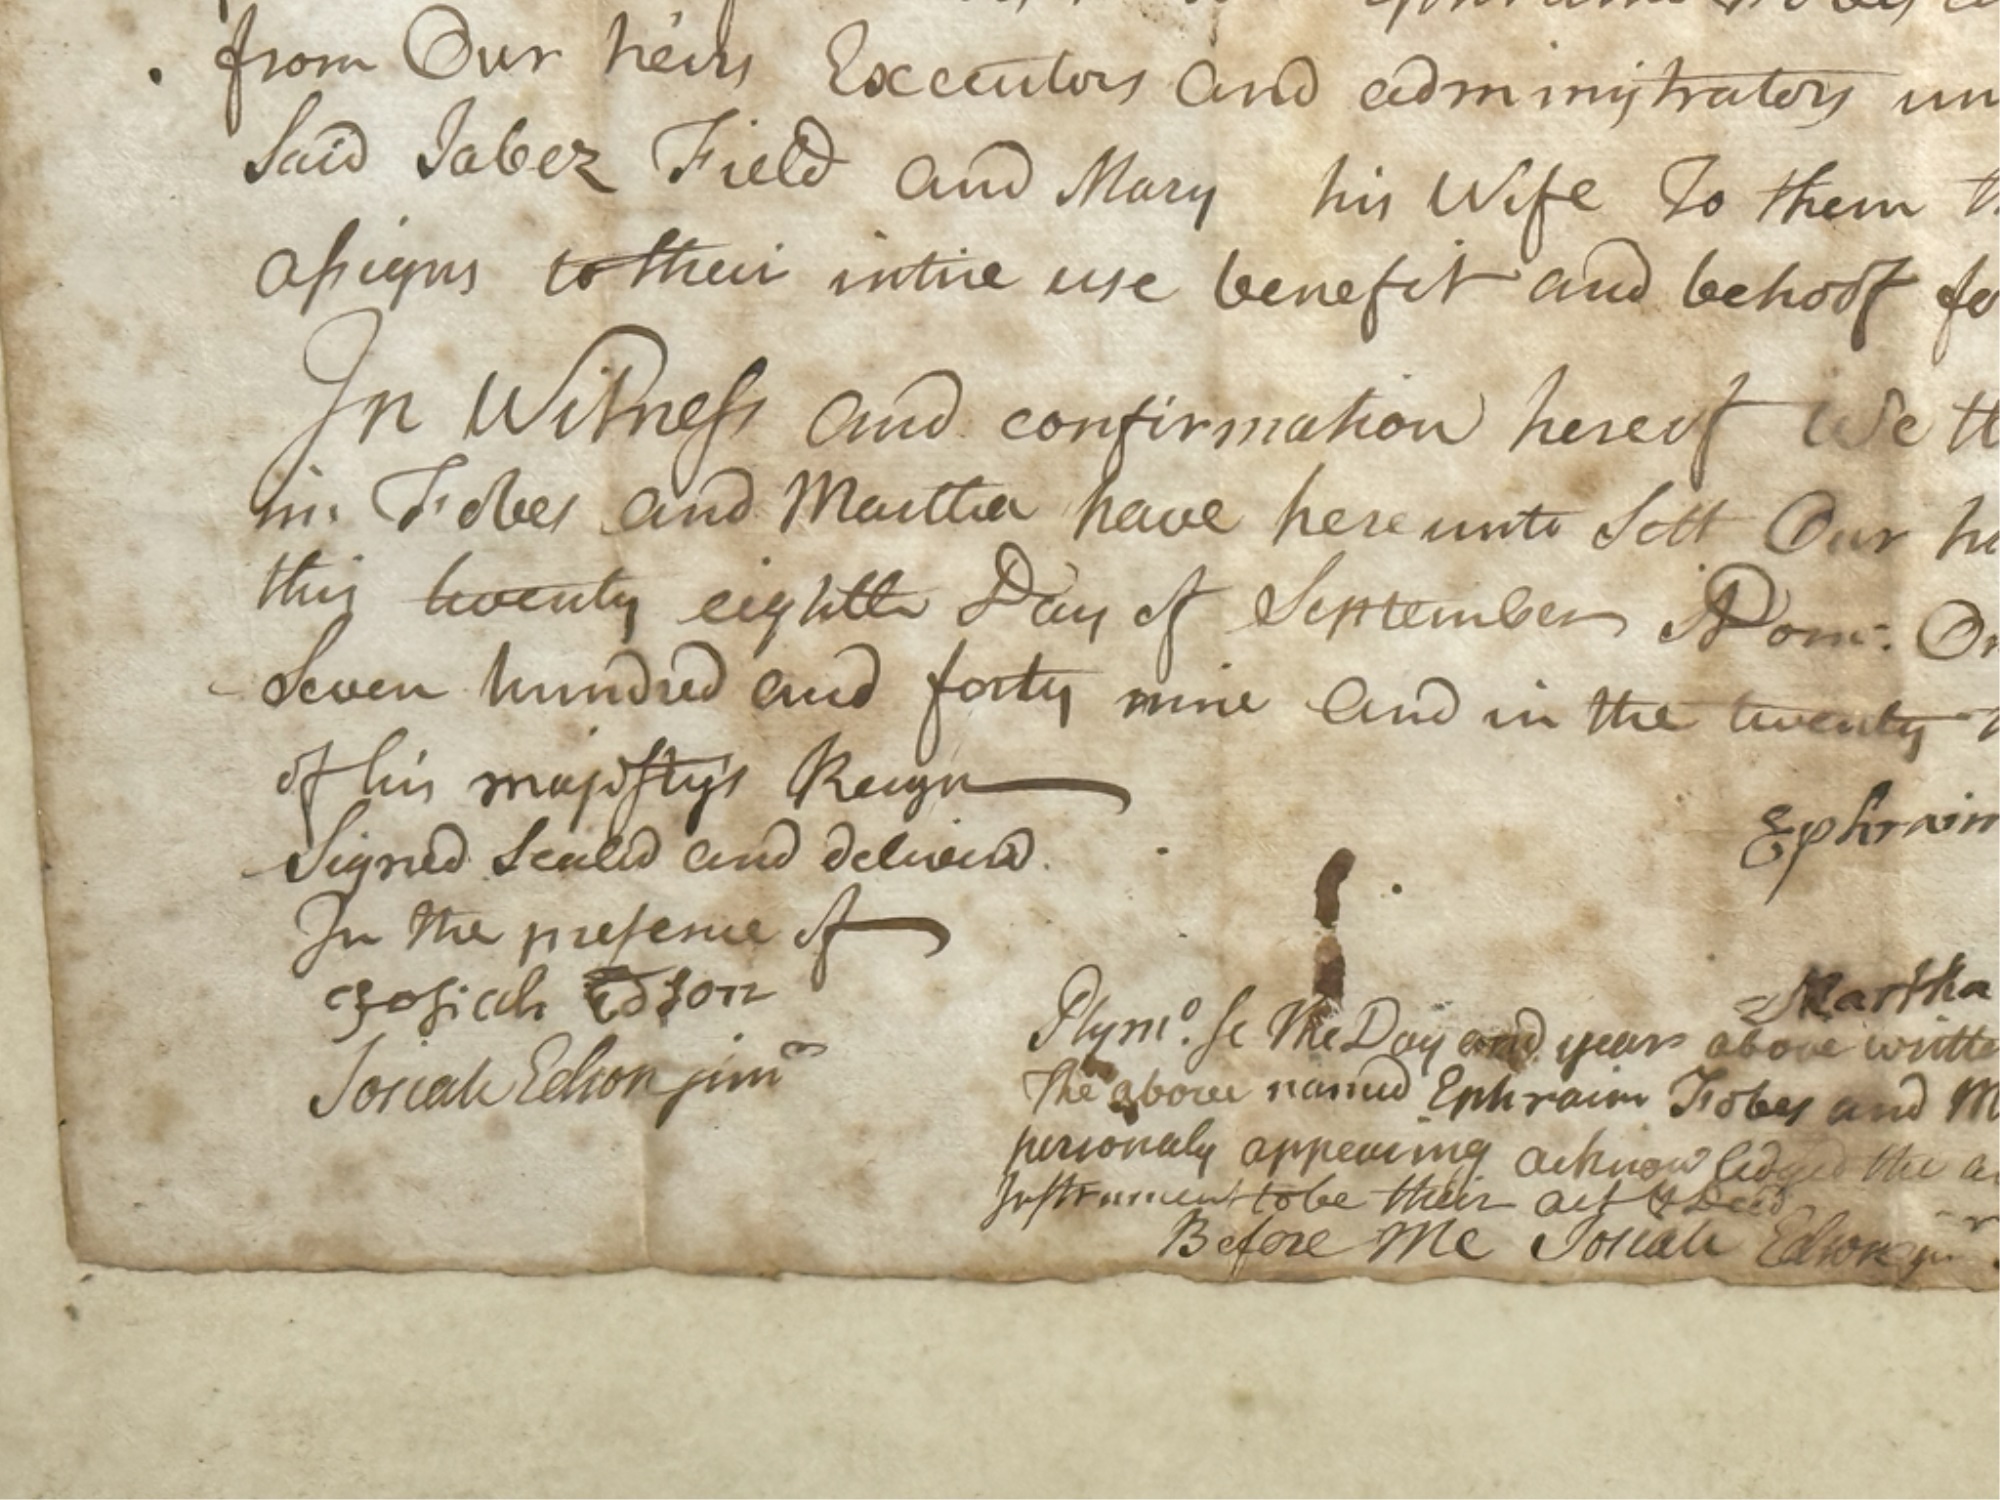 from Our heirs Executors and administrators un
Said Jabez Field and Mary his Wife To them th
assigns to their intire use benefit and behoof fo
In Witness and confirmation hereof We th
im Fobes and Martha have hereunto Sett Our ha
this twenty eighth Day of September ADom: On
Seven hundred and forty nine and in the twenty
of his majestys Reign
Signed Sealed and deliverd
In the presence of
Ephraim
Josiah Edson
Martha
Josiah Edson junr
Plymo. Sc The Day and year above writte
The above named Ephraim Fobes and M
personaly appearing acknowledged the a
Instrument to be their act & Deed
Before Me Josiah Edson jur